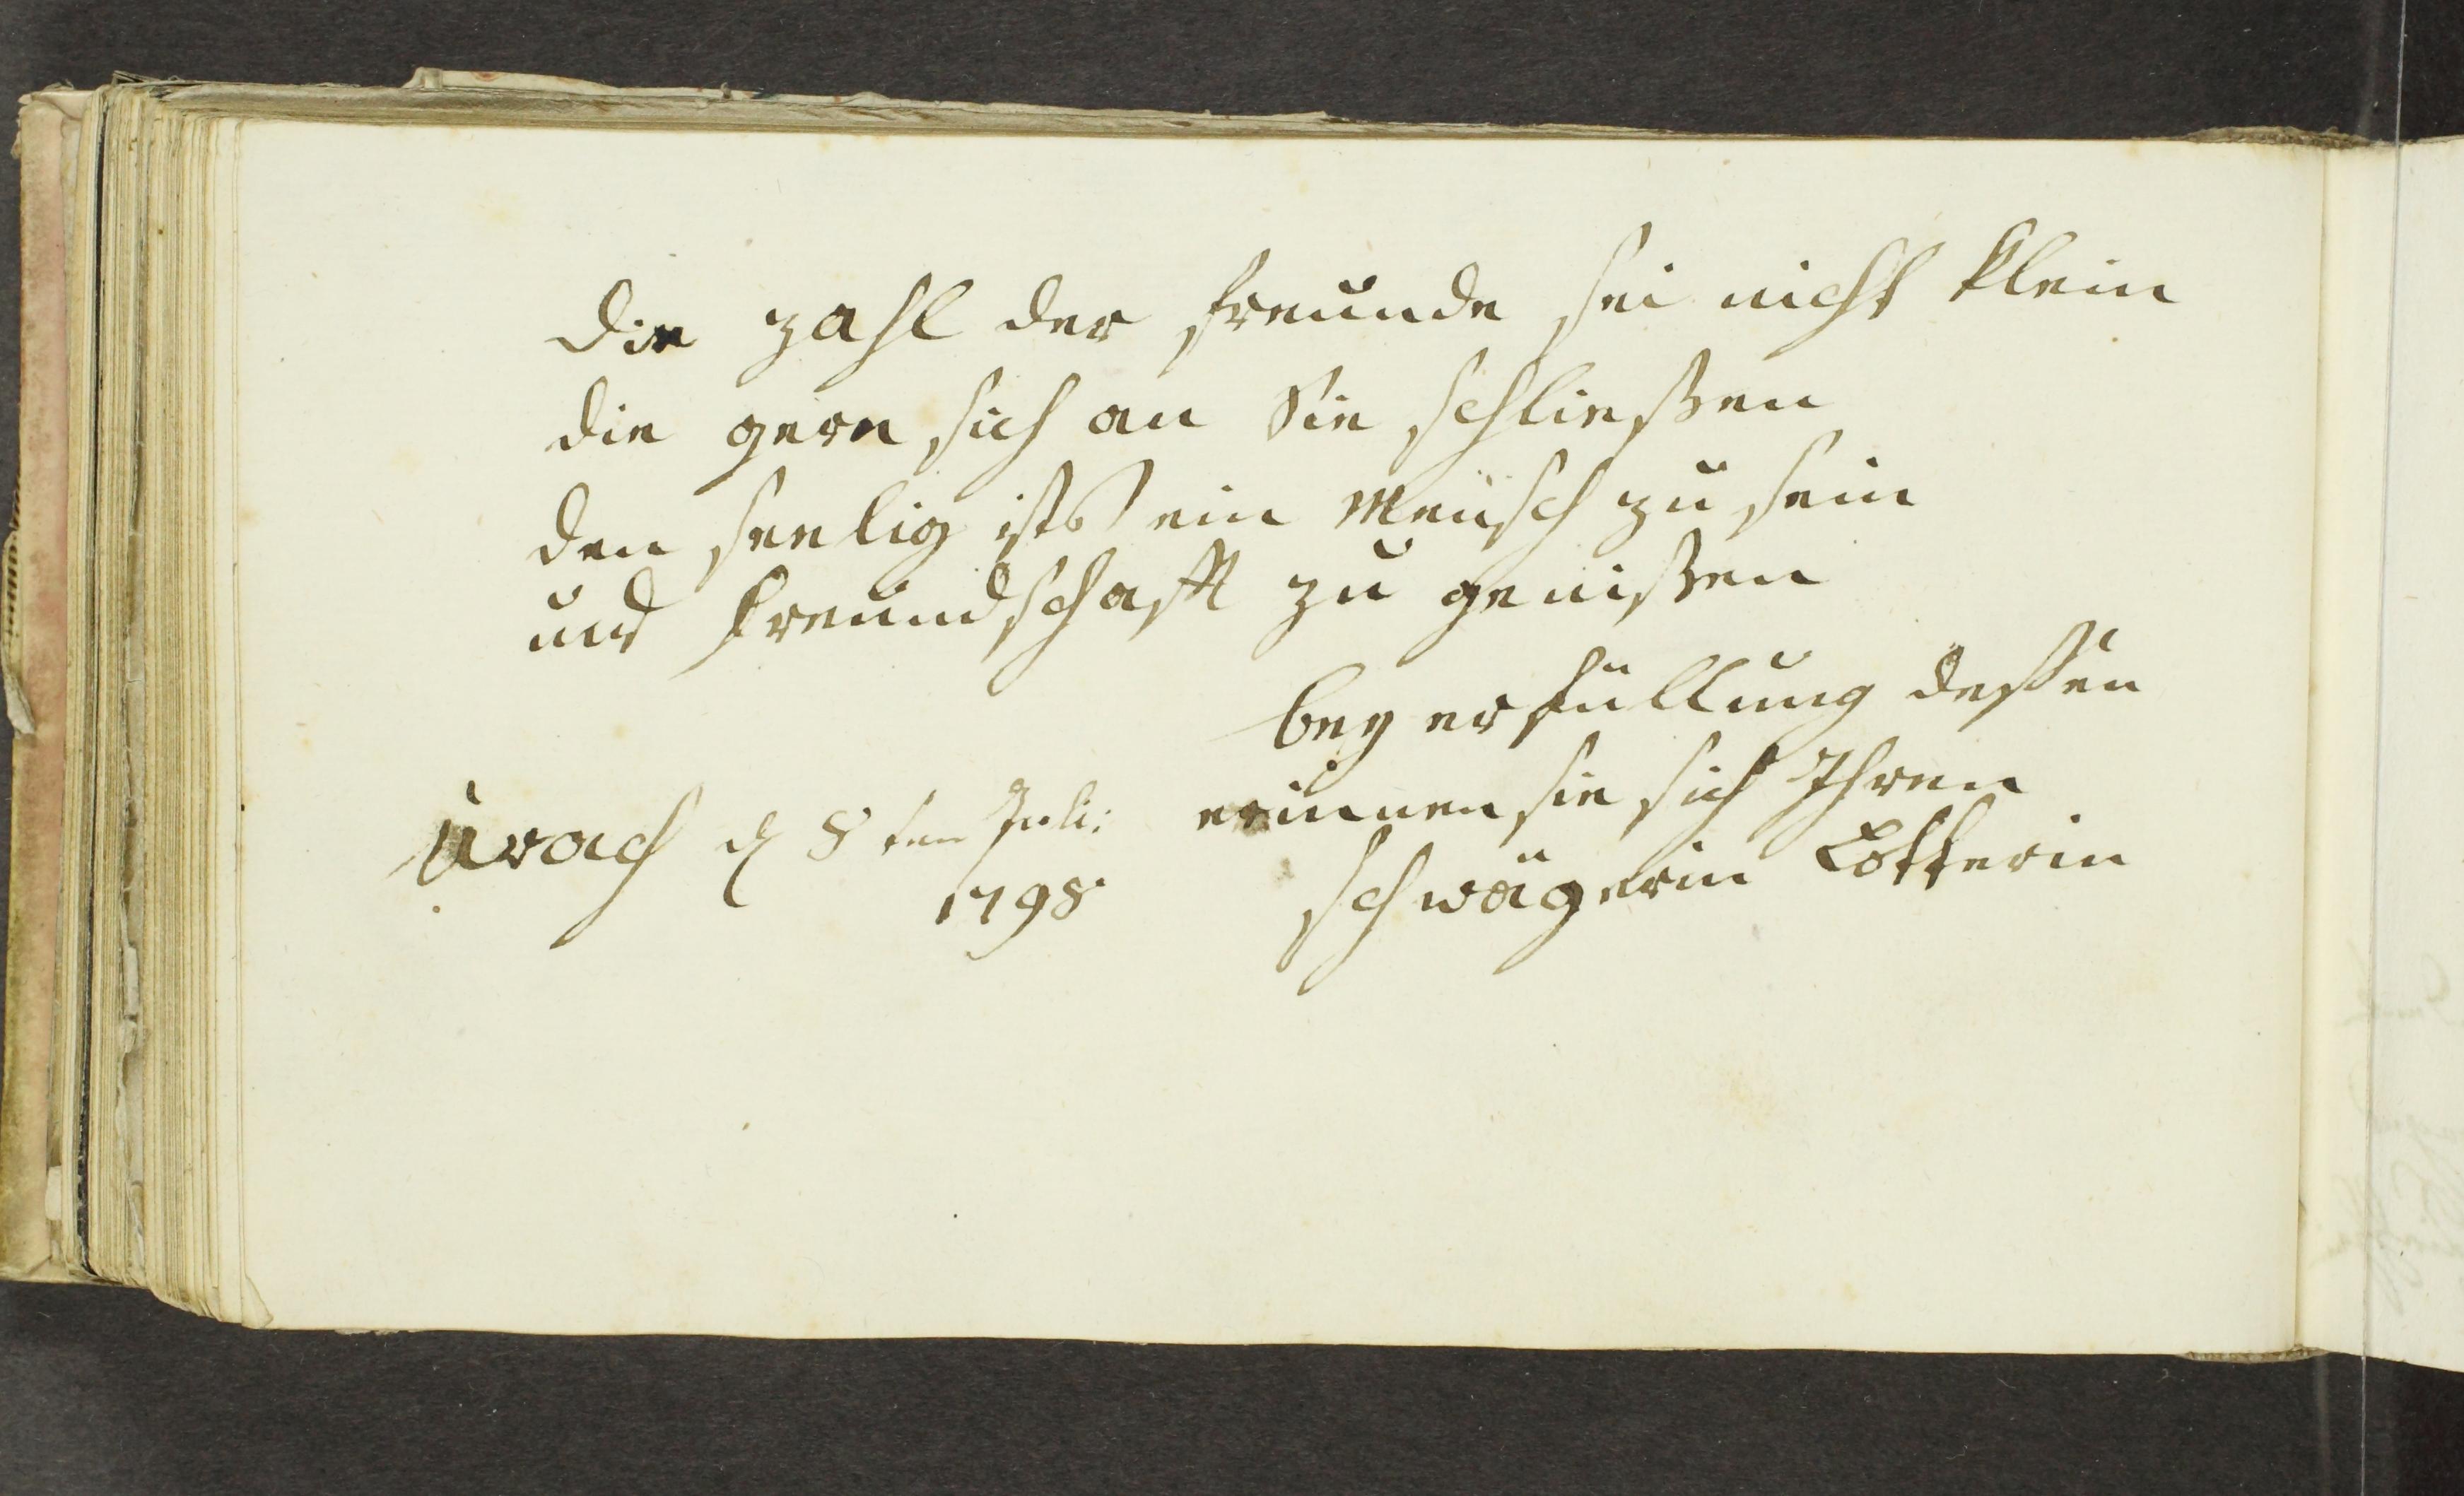 Die zahl der freunde sei nicht klein
die gern sich an Sie schließen
den seelig ists ein Mensch zu sein
und freundschafft zu genißen
bey erfüllung deßen
erinnen sie sich Ihren
schwägerin Lotterin
Urach d 8 ten Juli:
1798